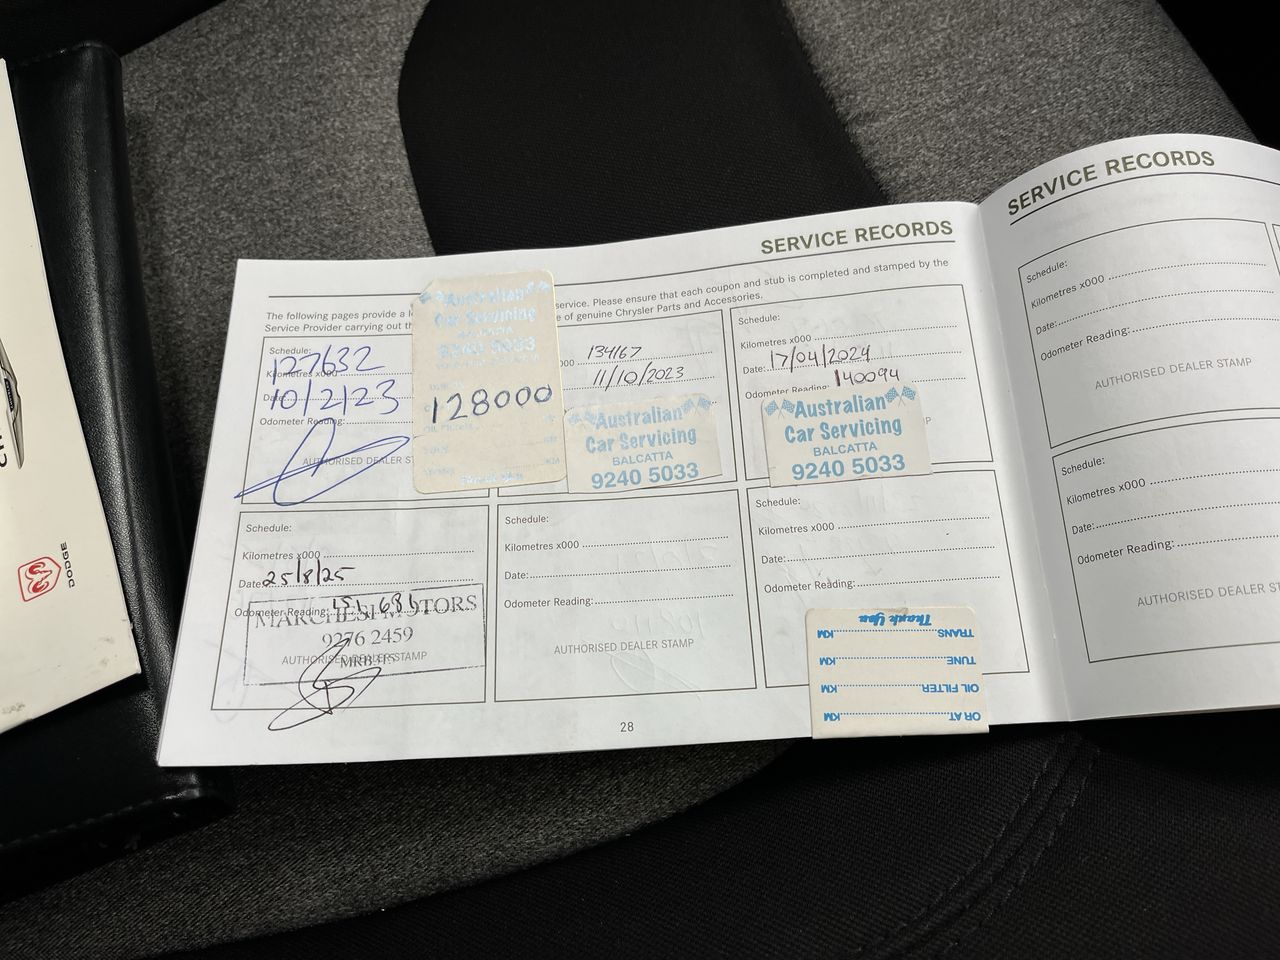 SERVICE RECORDS
The following pages provide a
service. Please ensure that each coupon and stub is completed and stamped by the
Service Provider carrying out
of genuine Chrysler Parts and Accessories.
Schedule:
127632
Kilometres x000
10/2/23
Odometer Reading:
AUTHORISED DEALER
Australian
Car Servicing
BALCATTA
9240 5033
128000
KM
KM
134167
11/10/2023
Australian
Car Servicing
BALCATTA
9240 5033
Schedule:
Kilometres x000
Date: 17/04/2024
Odometer Reading: 140094
Australian
Car Servicing
BALCATTA
9240 5033
Schedule:
Kilometres x000
Date: 25/8/25
Odometer Reading:
MARCHESI MOTORS
9276 2459
AUTHORISED DEALER STAMP
Schedule:
Kilometres x000
Date:
Odometer Reading:
AUTHORISED DEALER STAMP
Schedule:
Kilometres x000
Date:
Odometer Reading:
Thank You
TRANS. KM
TUNE KM
OIL FILTER KM
OR AT KM
28
SERVICE RECORDS
Schedule:
Kilometres x000
Date:
Odometer Reading:
AUTHORISED DEALER STAMP
Schedule:
Kilometres x000
Date:
Odometer Reading:
AUTHORISED DEALER
DODGE